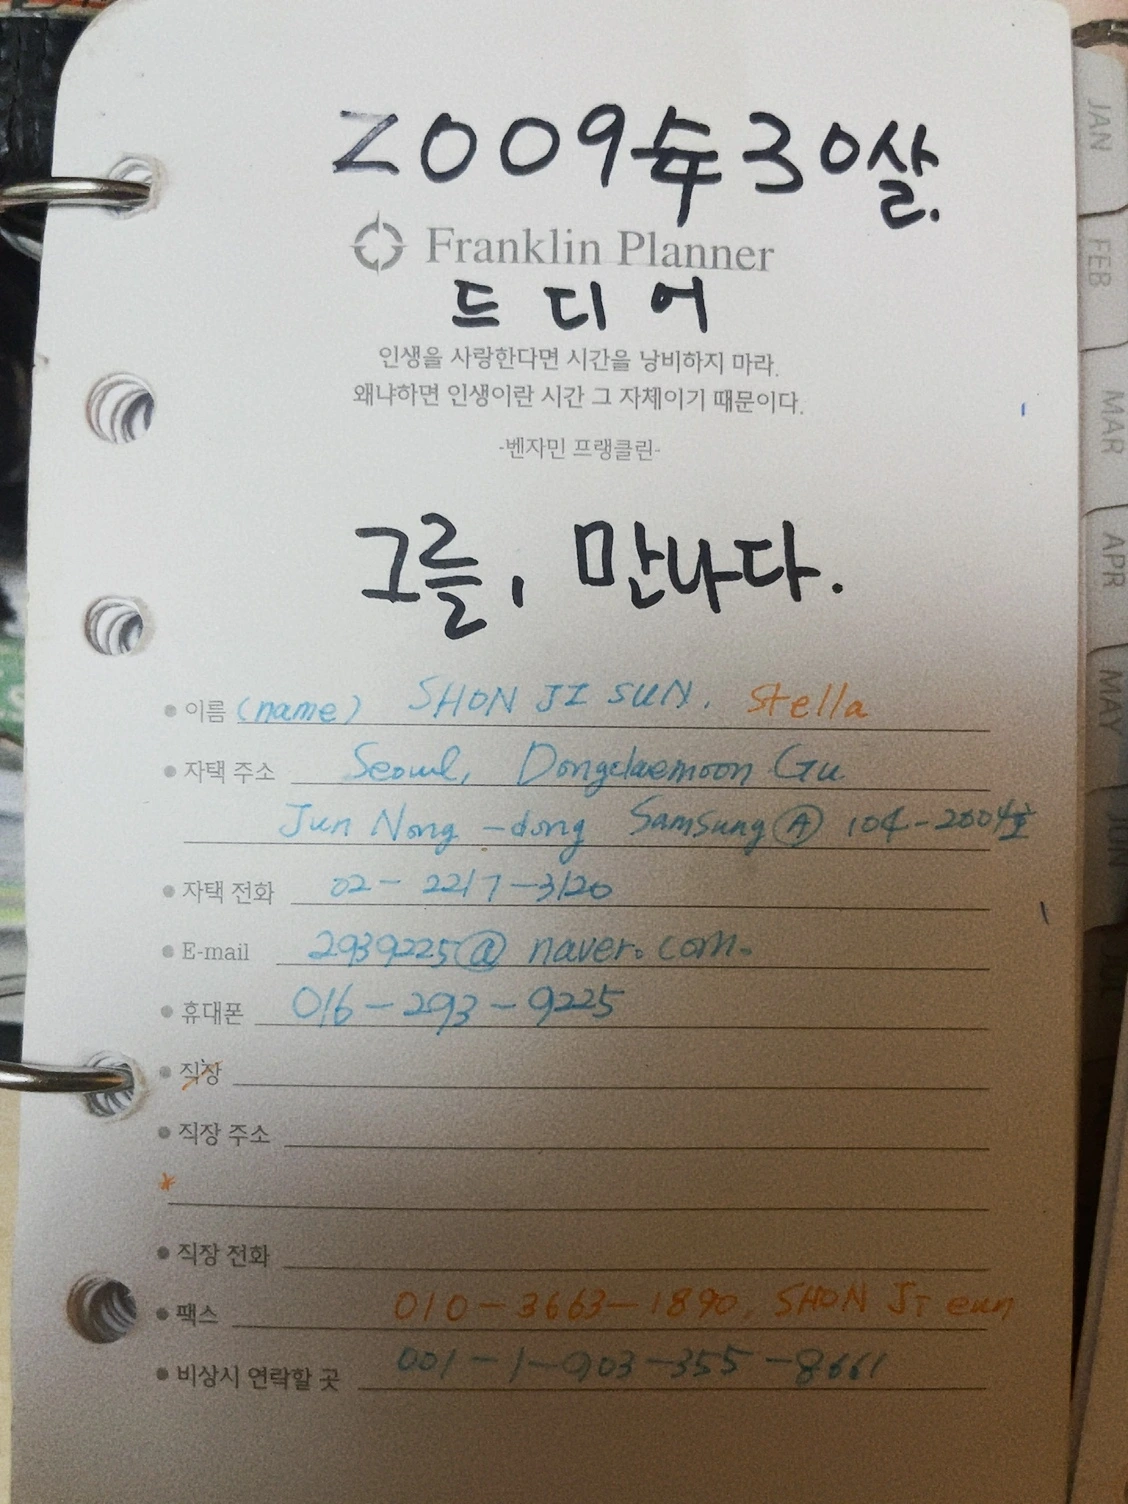 2009年 30살.
Franklin Planner
드디어
인생을 사랑한다면 시간을 낭비하지 마라.
왜냐하면 인생이란 시간 그 자체이기 때문이다.
-벤자민 프랭클린-
그를, 만나다.
이름 (name) SHON JI SUN. Stella
자택 주소 Seoul, Dongdaemoon Gu
Jun Nong-dong Samsung Ⓐ 104-2004호
자택 전화 02-2217-3120
E-mail 2939225@naver.com.
휴대폰 016-293-9225
직장
직장 주소
*
직장 전화
팩스 010-3663-1890, SHON Ji eun
비상시 연락할 곳 001-1-903-355-8661
JAN
FEB
MAR
APR
MAY
JUN